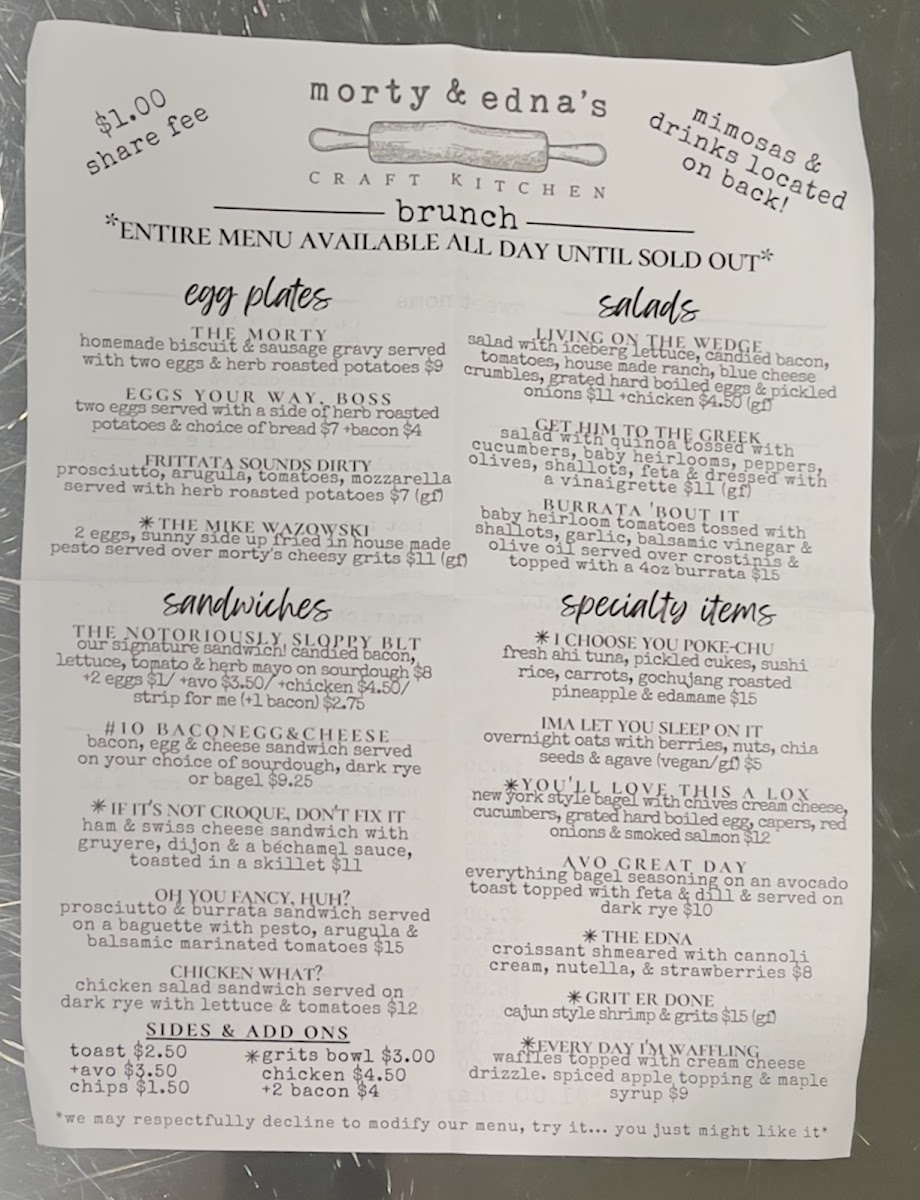 $1.00
share fee
morty & edna's
CRAFT KITCHEN
mimosas &
drinks located
on back!
brunch
*ENTIRE MENU AVAILABLE ALL DAY UNTIL SOLD OUT*
egg plates
THE MORTY
homemade biscuit & sausage gravy served
with two eggs & herb roasted potatoes $9
EGGS YOUR WAY, BOSS
two eggs served with a side of herb roasted
potatoes & choice of bread $7 +bacon $4
FRITTATA SOUNDS DIRTY
prosciutto, arugula, tomatoes, mozzarella
served with herb roasted potatoes $7 (gf)
*THE MIKE WAZOWSKI
2 eggs, sunny side up fried in house made
pesto served over morty's cheesy grits $11 (gf)
salads
LIVING ON THE WEDGE
salad with iceberg lettuce, candied bacon,
tomatoes, house made ranch, blue cheese
crumbles, grated hard boiled eggs & pickled
onions $11 +chicken $4.50 (gf)
GET HIM TO THE GREEK
salad with quinoa tossed with
cucumbers, baby heirlooms, peppers,
olives, shallots, feta & dressed with
a vinaigrette $11 (gf)
BURRATA 'BOUT IT
baby heirloom tomatoes tossed with
shallots, garlic, balsamic vinegar &
olive oil served over crostinis &
topped with a 4oz burrata $15
sandwiches
THE NOTORIOUSLY SLOPPY BLT
our signature sandwich! candied bacon,
lettuce, tomato & herb mayo on sourdough $8
+2 eggs $1/ +avo $3.50/ +chicken $4.50/
strip for me (+1 bacon) $2.75
#10 BACONEGG&CHEESE
bacon, egg & cheese sandwich served
on your choice of sourdough, dark rye
or bagel $9.25
*IF IT'S NOT CROQUE, DON'T FIX IT
ham & swiss cheese sandwich with
gruyere, dijon & a béchamel sauce,
toasted in a skillet $11
OH YOU FANCY, HUH?
prosciutto & burrata sandwich served
on a baguette with pesto, arugula &
balsamic marinated tomatoes $15
CHICKEN WHAT?
chicken salad sandwich served on
dark rye with lettuce & tomatoes $12
SIDES & ADD ONS
toast $2.50
+avo $3.50
chips $1.50
*grits bowl $3.00
chicken $4.50
+2 bacon $4
specialty items
*I CHOOSE YOU POKE-CHU
fresh ahi tuna, pickled cukes, sushi
rice, carrots, gochujang roasted
pineapple & edamame $15
IMA LET YOU SLEEP ON IT
overnight oats with berries, nuts, chia
seeds & agave (vegan/gf) $5
*YOU'LL LOVE THIS A LOX
new york style bagel with chives cream cheese,
cucumbers, grated hard boiled egg, capers, red
onions & smoked salmon $12
AVO GREAT DAY
everything bagel seasoning on an avocado
toast topped with feta & dill & served on
dark rye $10
*THE EDNA
croissant shmeared with cannoli
cream, nutella, & strawberries $8
*GRIT ER DONE
cajun style shrimp & grits $15 (gf)
*EVERY DAY I'M WAFFLING
waffles topped with cream cheese
drizzle. spiced apple topping & maple
syrup $9
*we may respectfully decline to modify our menu, try it... you just might like it*